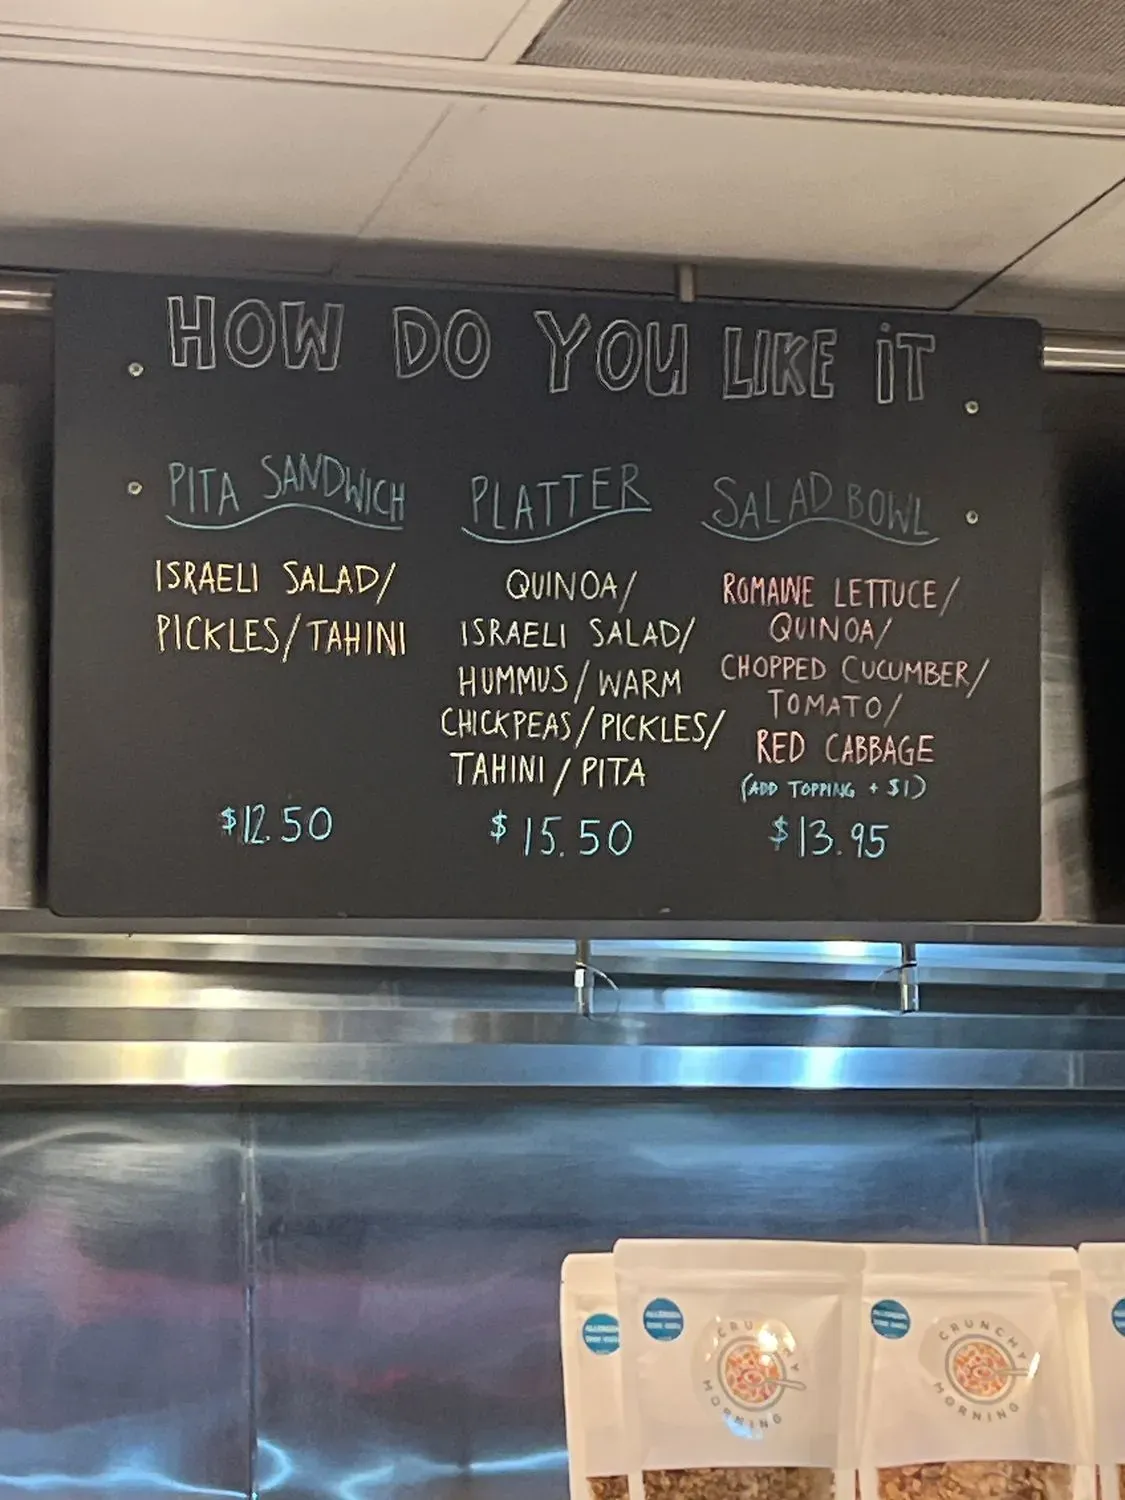 HOW DO YOU LIKE iT
PITA SANDWICH
ISRAELI SALAD/
PICKLES/TAHINI
$12.50
PLATTER
QUINOA/
ISRAELI SALAD/
HUMMUS/WARM
CHICKPEAS/PICKLES/
TAHINI/PITA
$15.50
SALAD BOWL
ROMAINE LETTUCE/
QUINOA/
CHOPPED CUCUMBER/
TOMATO/
RED CABBAGE
(ADD TOPPING + $1)
$13.95
CRUNCHY MORNING
CRUNCHY MORNING